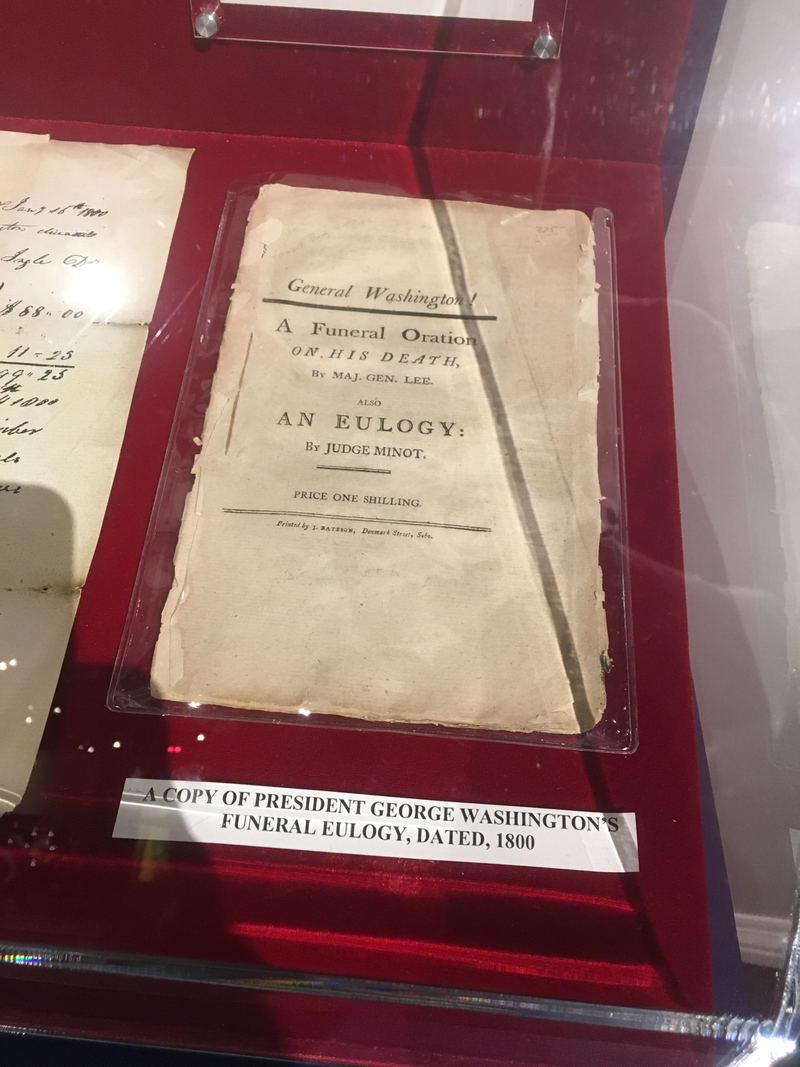 Jany 16th 1800
$ 88.. 00
11 = 25
99.. 25
General Washington!
A Funeral Oration
ON HIS DEATH,
By MAJ. GEN. LEE.
ALSO
AN EULOGY:
By JUDGE MINOT.
PRICE ONE SHILLING.
Printed by J. BATESON, Denmark Street, Soho.
A COPY OF PRESIDENT GEORGE WASHINGTON'S
FUNERAL EULOGY, DATED, 1800